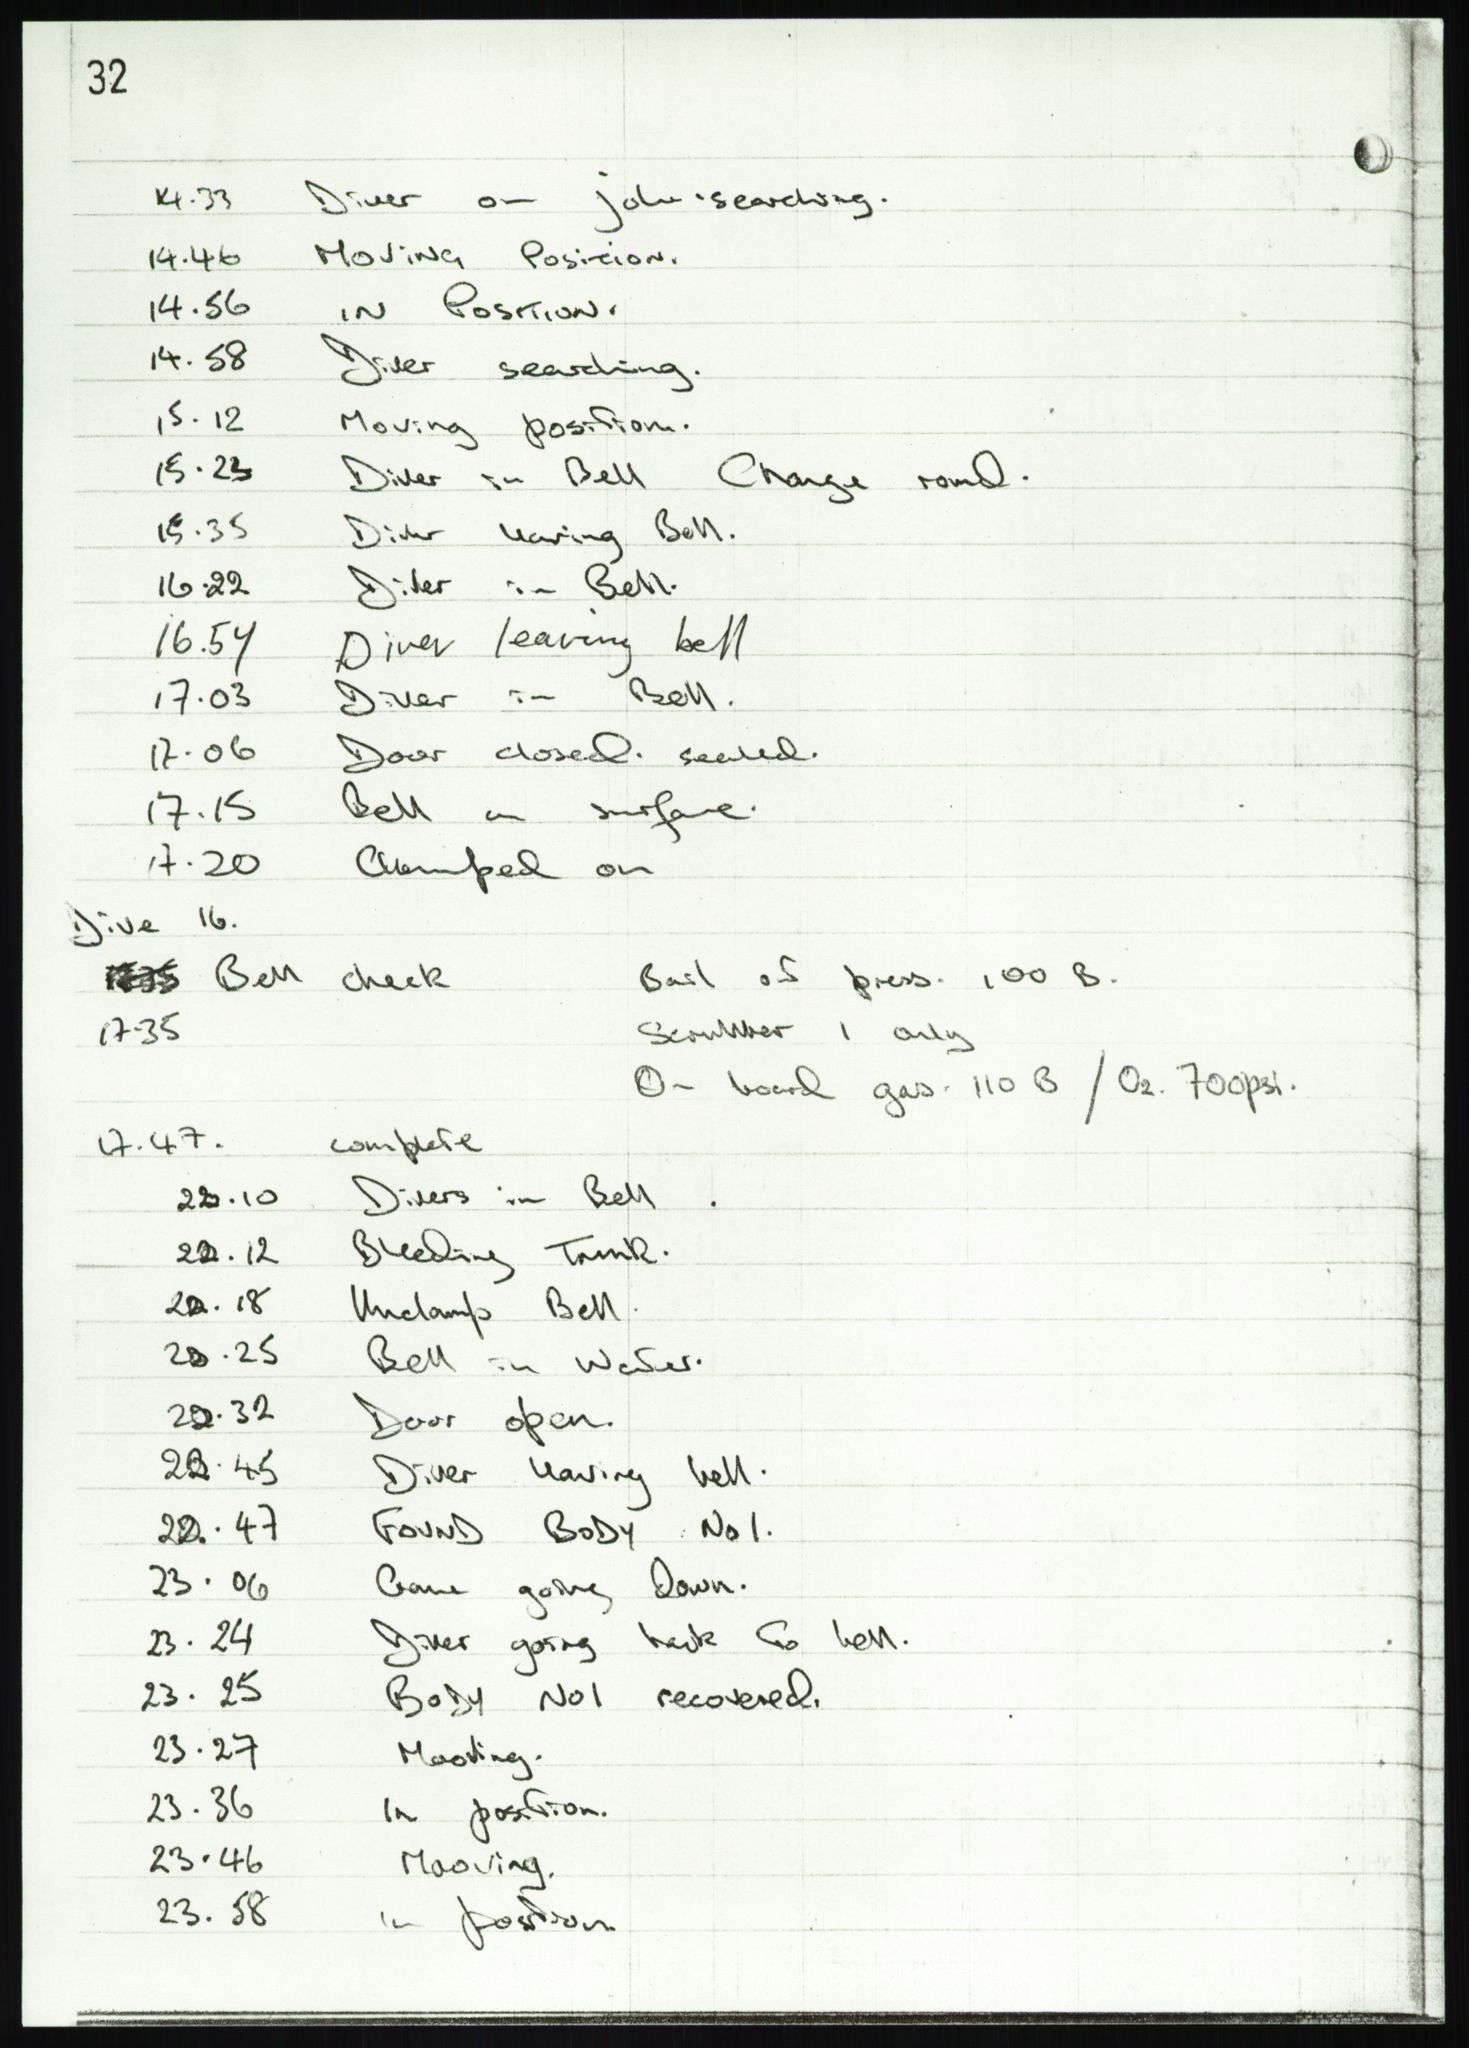 32
14.33 Diver on job searching.
14.46 Moving Position.
14.56 in Position.
14.58 Diver searching.
15.12 Moving position.
15.23 Diver in Bell Change round.
15.35 Diver leaving Bell.
16.22 Diver in Bell.
16.54 Diver leaving bell
17.03 Diver in Bell.
17.06 Door closed. sealed.
17.15 Bell on surface.
17.20 Clamped on
Dive 16.
Bell check Bail out press. 100 B.
17.35 Scrubber 1 only
On board gas. 110 B / O2. 700psi.
17.47. complete
22.10 Divers in Bell.
22.12 Bleeding Trunk.
22.18 Unclamp Bell.
22.25 Bell in Water.
22.32 Door open.
22.45 Diver leaving bell.
22.47 FOUND BODY No1.
23.06 Crane going Down.
23.24 Diver going back to bell.
23.25 BODY No1 recovered.
23.27 Mooving.
23.36 In position.
23.46 Mooving.
23.58 in position